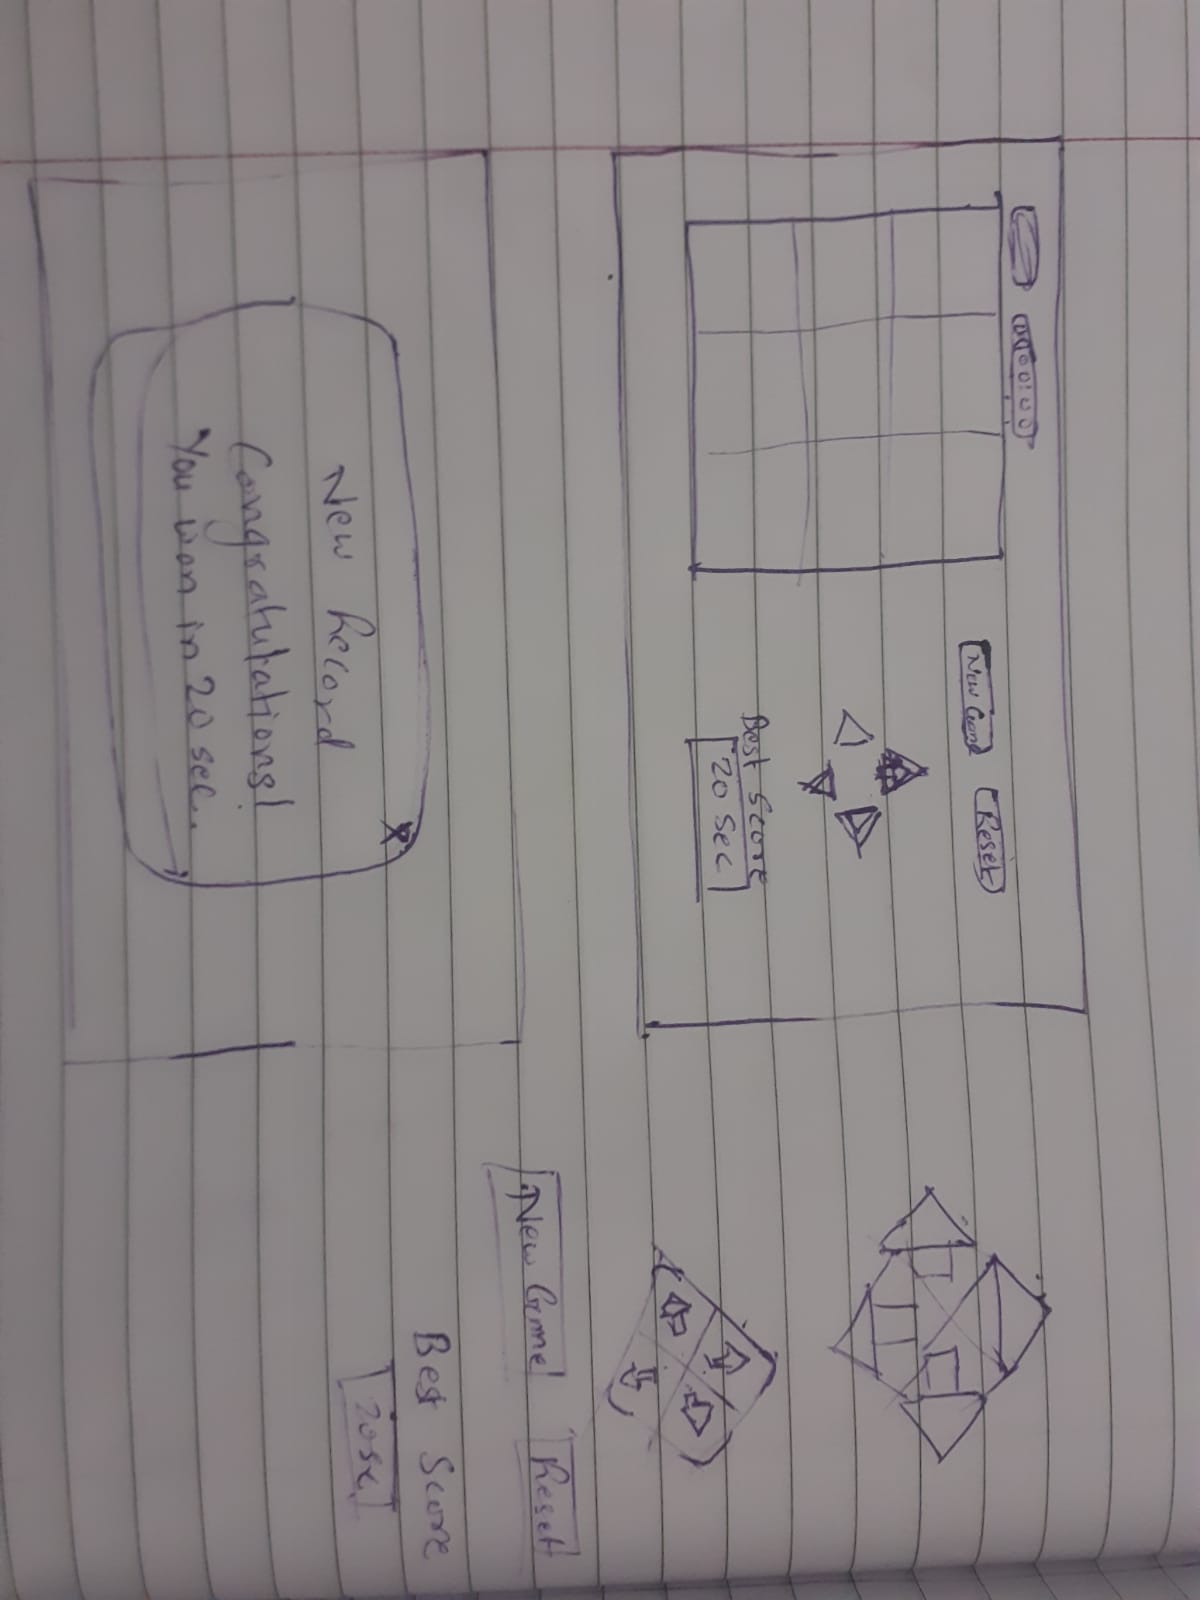 00:00:00
New Game
Reset
Best Score
20 Sec
New Game
Reset
Best Score
20 sec
X
New Record
Congratulations!
You won in 20 sec..